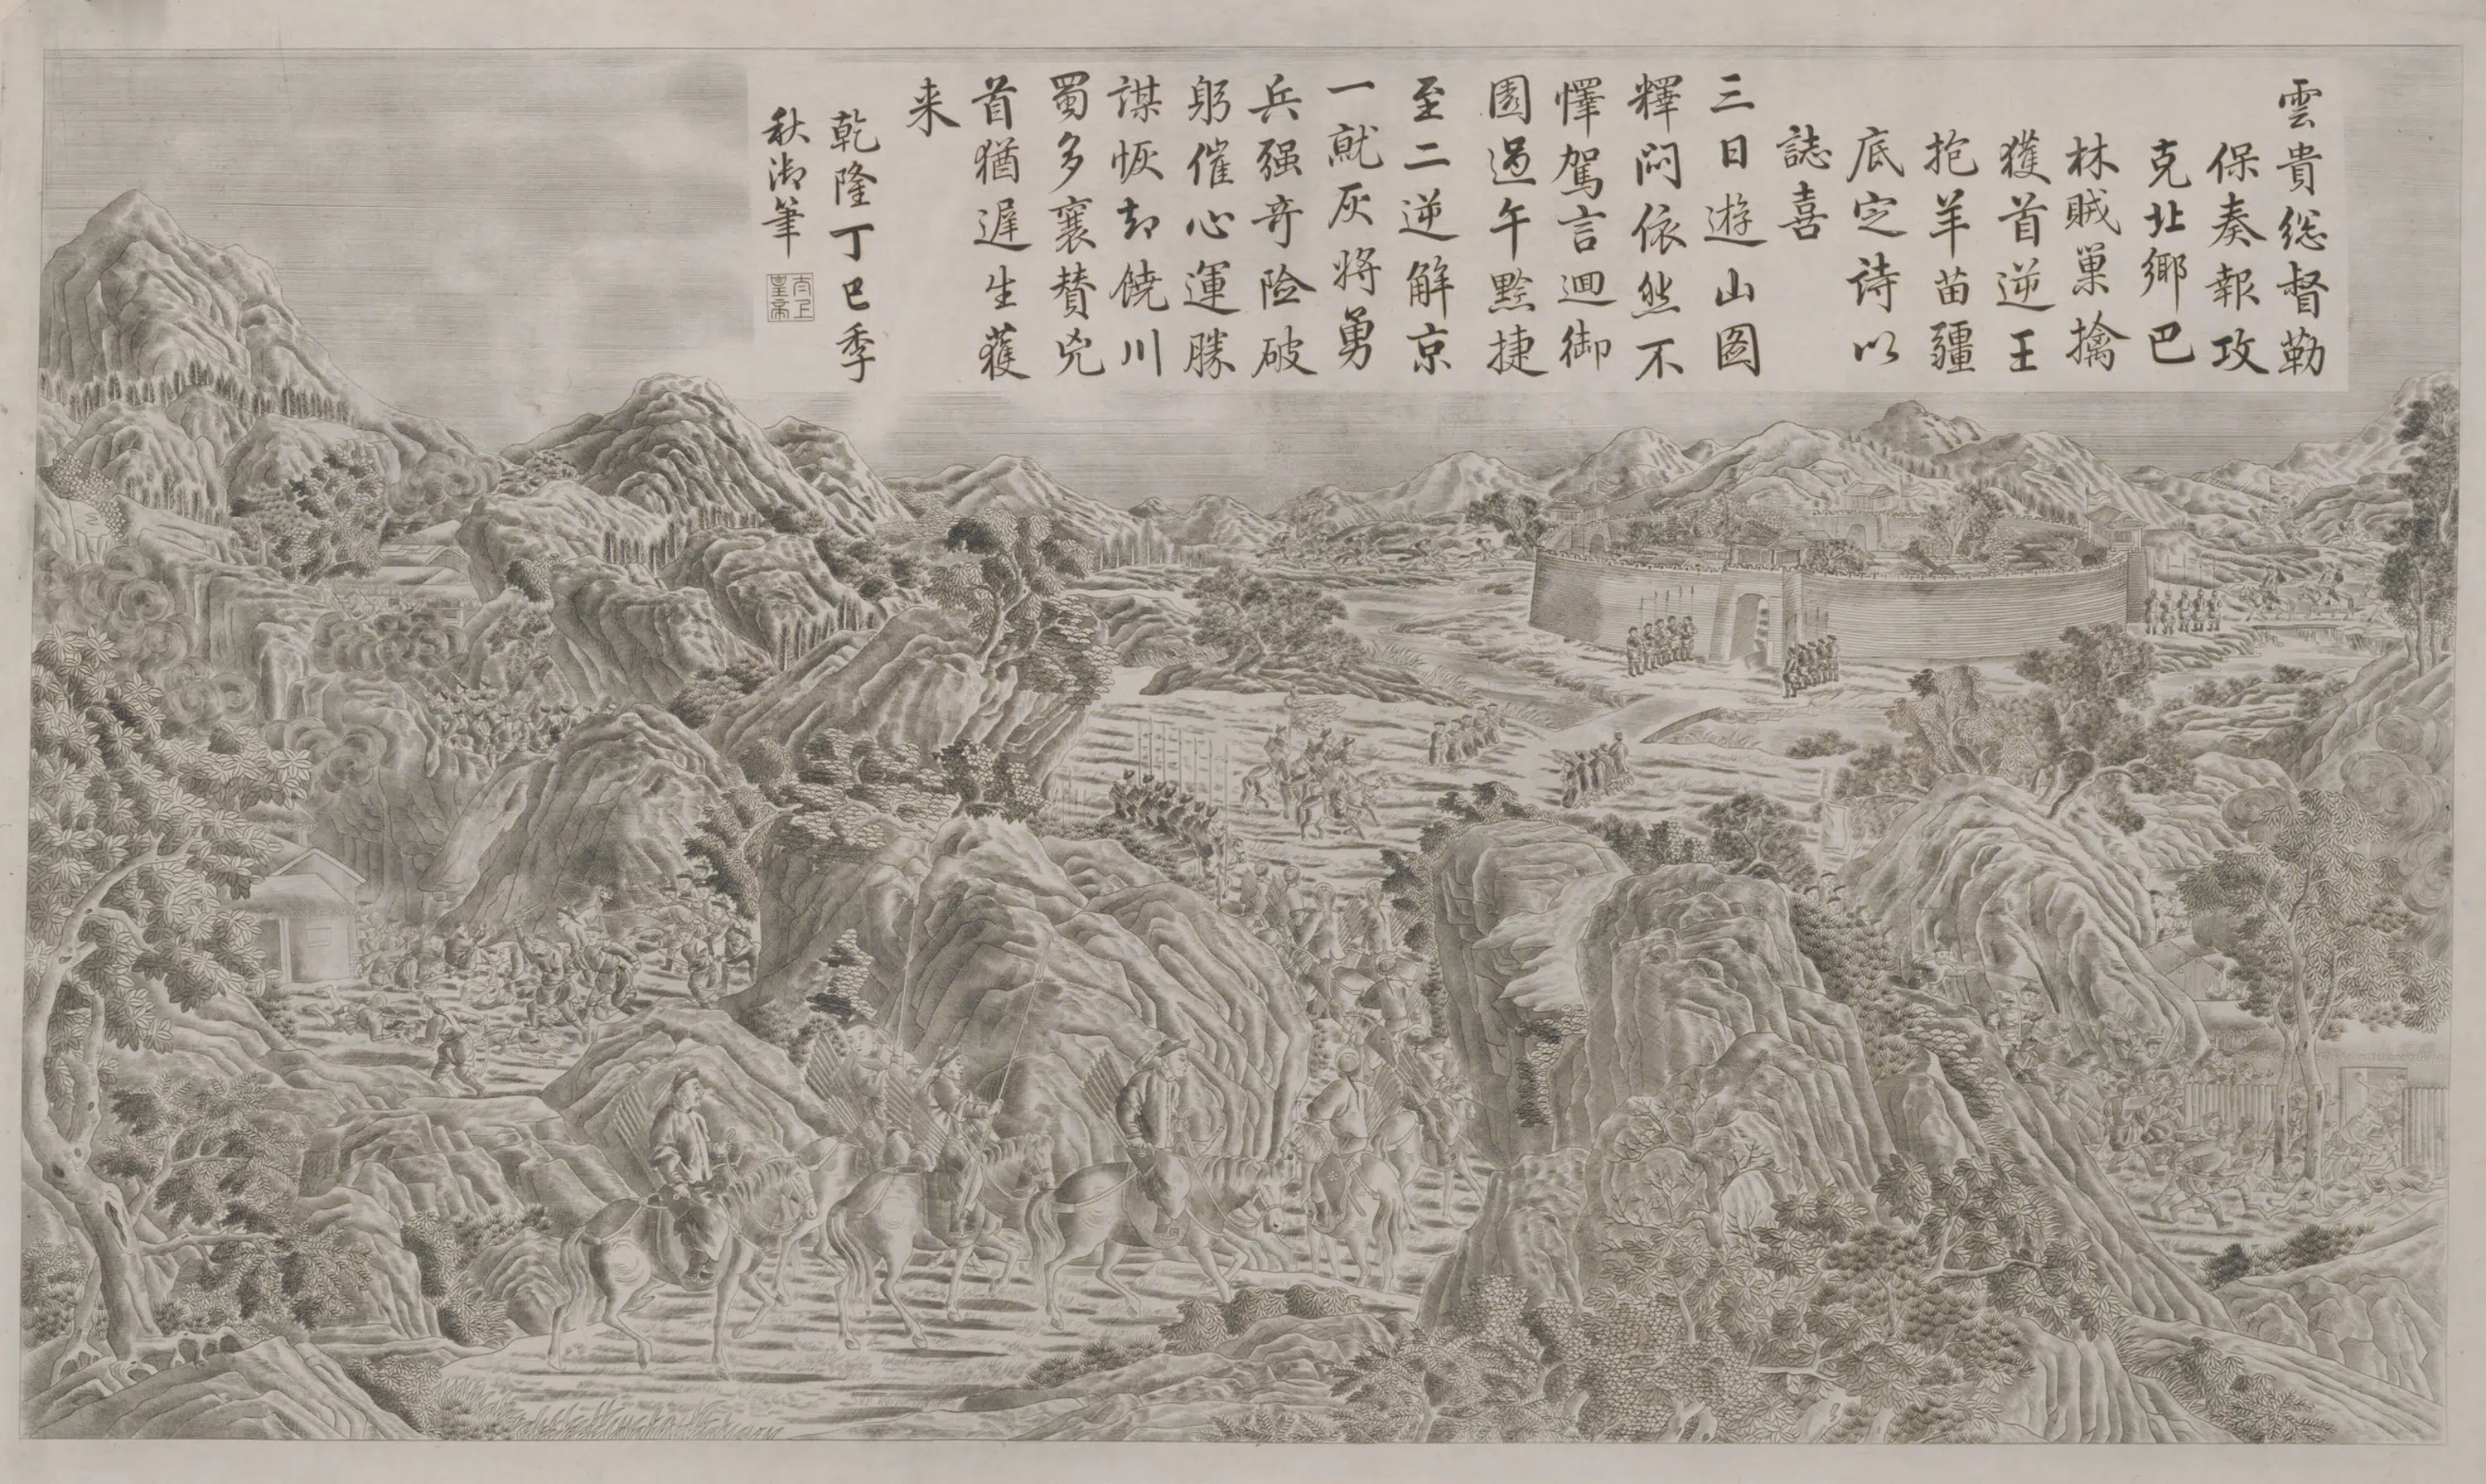 雲貴総督勒
保奏報攻
克北鄉巴
林賊巢擒
獲首逆王
抱羊苗疆
底定詩以
誌喜
三日遊山圖
釋悶依然不
懌駕言迴御
園過午黔捷
至二逆解京
一就灰將勇
兵强奇險破
躬催心運勝
謀恢却饒川
蜀多襄賛兇
首猶遲生獲
来
乾隆丁巳季
秋御筆
太上
皇帝